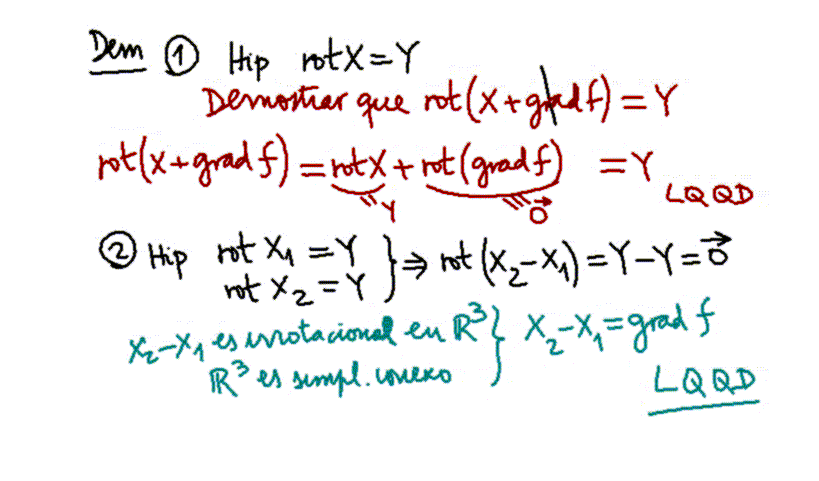 Dem ① Hip rot X = Y
Demostrar que rot(X + grad f) = Y
rot(X + grad f) = rot X + rot(grad f) = Y
Y 0⃗ LQQD
② Hip rot X₁ = Y
rot X₂ = Y } ⇒ rot(X₂ − X₁) = Y − Y = 0⃗
X₂ − X₁ es irrotacional en ℝ³
ℝ³ es simpl. conexo } X₂ − X₁ = grad f
LQQD